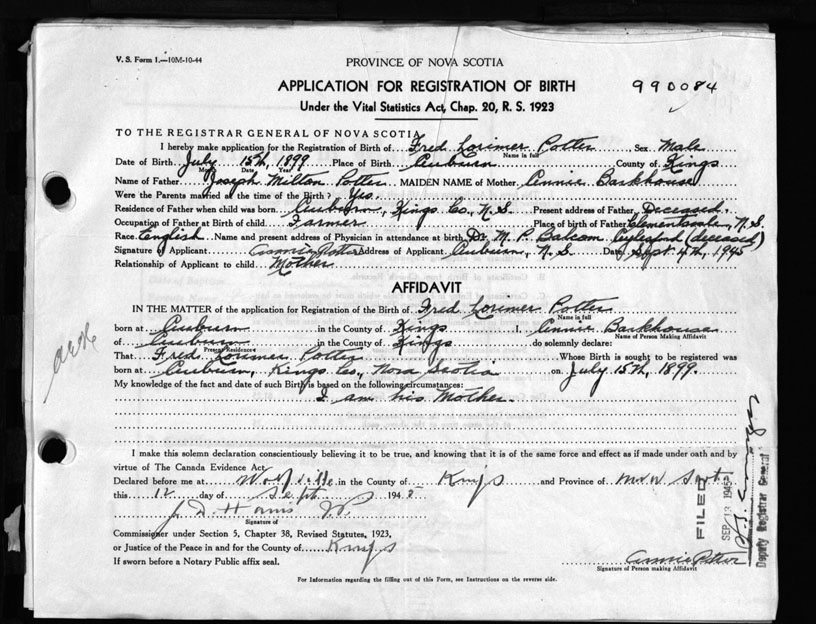 V. S. Form 1.—10M-10-44
PROVINCE OF NOVA SCOTIA
APPLICATION FOR REGISTRATION OF BIRTH 990084
Under the Vital Statistics Act, Chap. 20, R. S. 1923
TO THE REGISTRAR GENERAL OF NOVA SCOTIA
I hereby make application for the Registration of Birth of Fred Lorimer Potter Sex Male
Name in full
Date of Birth July 15th, 1899 Place of Birth Auburn County of Kings
Month Date Year
Name of Father Joseph Milton Potter MAIDEN NAME of Mother Annie Barkhouse
Were the Parents married at the time of the Birth? Yes.
Residence of Father when child was born Auburn, Kings Co., N. S. Present address of Father, Deceased.
Occupation of Father at Birth of child Farmer Place of birth of Father Clementsvale, N. S.
Race English Name and present address of Physician in attendance at birth Dr. M. P. Balcom Aylesford (deceased)
Signature of Applicant Annie Potter Address of Applicant Auburn, N. S. Date Sept. 4th, 1945
Relationship of Applicant to child Mother
AFFIDAVIT
IN THE MATTER of the application for Registration of the Birth of Fred Lorimer Potter
Name in full
born at Auburn in the County of Kings I, Annie Barkhouse
Name of Person Making Affidavit
of Auburn in the County of Kings do solemnly declare:
Present Residence
That Fred Lorimer Potter Whose Birth is sought to be registered was
born at Auburn, Kings Co., Nova Scotia on July 15th, 1899.
My knowledge of the fact and date of such Birth is based on the following circumstances:
I am his Mother.
I make this solemn declaration conscientiously believing it to be true, and knowing that it is of the same force and effect as if made under oath and by
virtue of The Canada Evidence Act.
Declared before me at Wolfville in the County of Kings and Province of Nova Scotia
this 12 day of Sept 194
Signature of
Commissioner under Section 5, Chapter 38, Revised Statutes, 1923,
or Justice of the Peace in and for the County of Kings
If sworn before a Notary Public affix seal.
Annie Potter
Signature of Person making Affidavit
For Information regarding the filling out of this Form, see Instructions on the reverse side.
FILED
SEP 13 1945
Deputy Registrar General